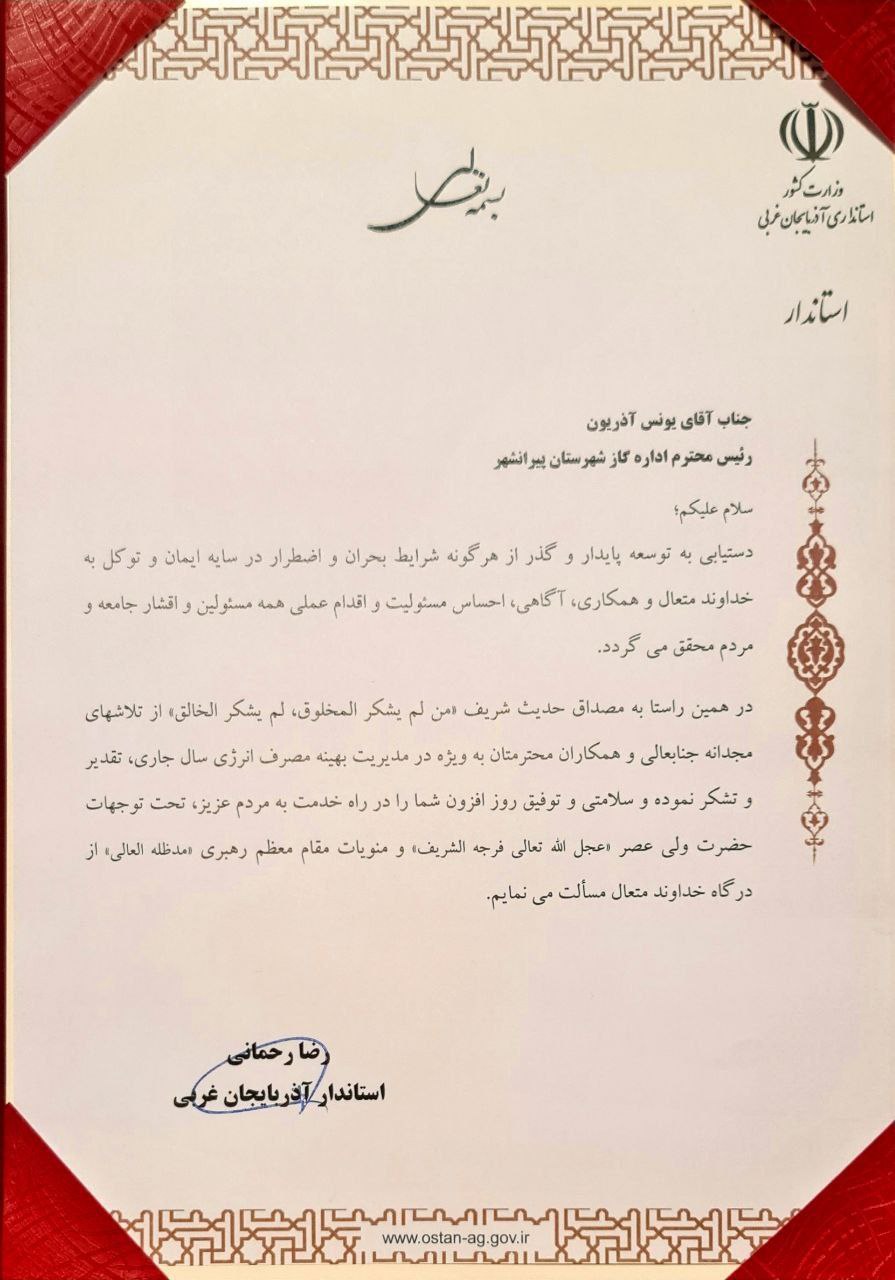 بسمه تعالی
وزارت کشور
استانداری آذربایجان غربی
استاندار
جناب آقای یونس آذریون
رئیس محترم اداره گاز شهرستان پیرانشهر
سلام علیکم؛
دستیابی به توسعه پایدار و گذر از هرگونه شرایط بحران و اضطرار در سایه ایمان و توکل به
خداوند متعال و همکاری، آگاهی، احساس مسئولیت و اقدام عملی همه مسئولین و اقشار جامعه و
مردم محقق می گردد.
در همین راستا به مصداق حدیث شریف «من لم یشکر المخلوق، لم یشکر الخالق» از تلاشهای
مجدانه جنابعالی و همکاران محترمتان به ویژه در مدیریت بهینه مصرف انرژی سال جاری، تقدیر
و تشکر نموده و سلامتی و توفیق روز افزون شما را در راه خدمت به مردم عزیز، تحت توجهات
حضرت ولی عصر «عجل الله تعالی فرجه الشریف» و منویات مقام معظم رهبری «مدظله العالی» از
درگاه خداوند متعال مسألت می نمایم.
رضا رحمانی
استاندار آذربایجان غربی
www.ostan-ag.gov.ir